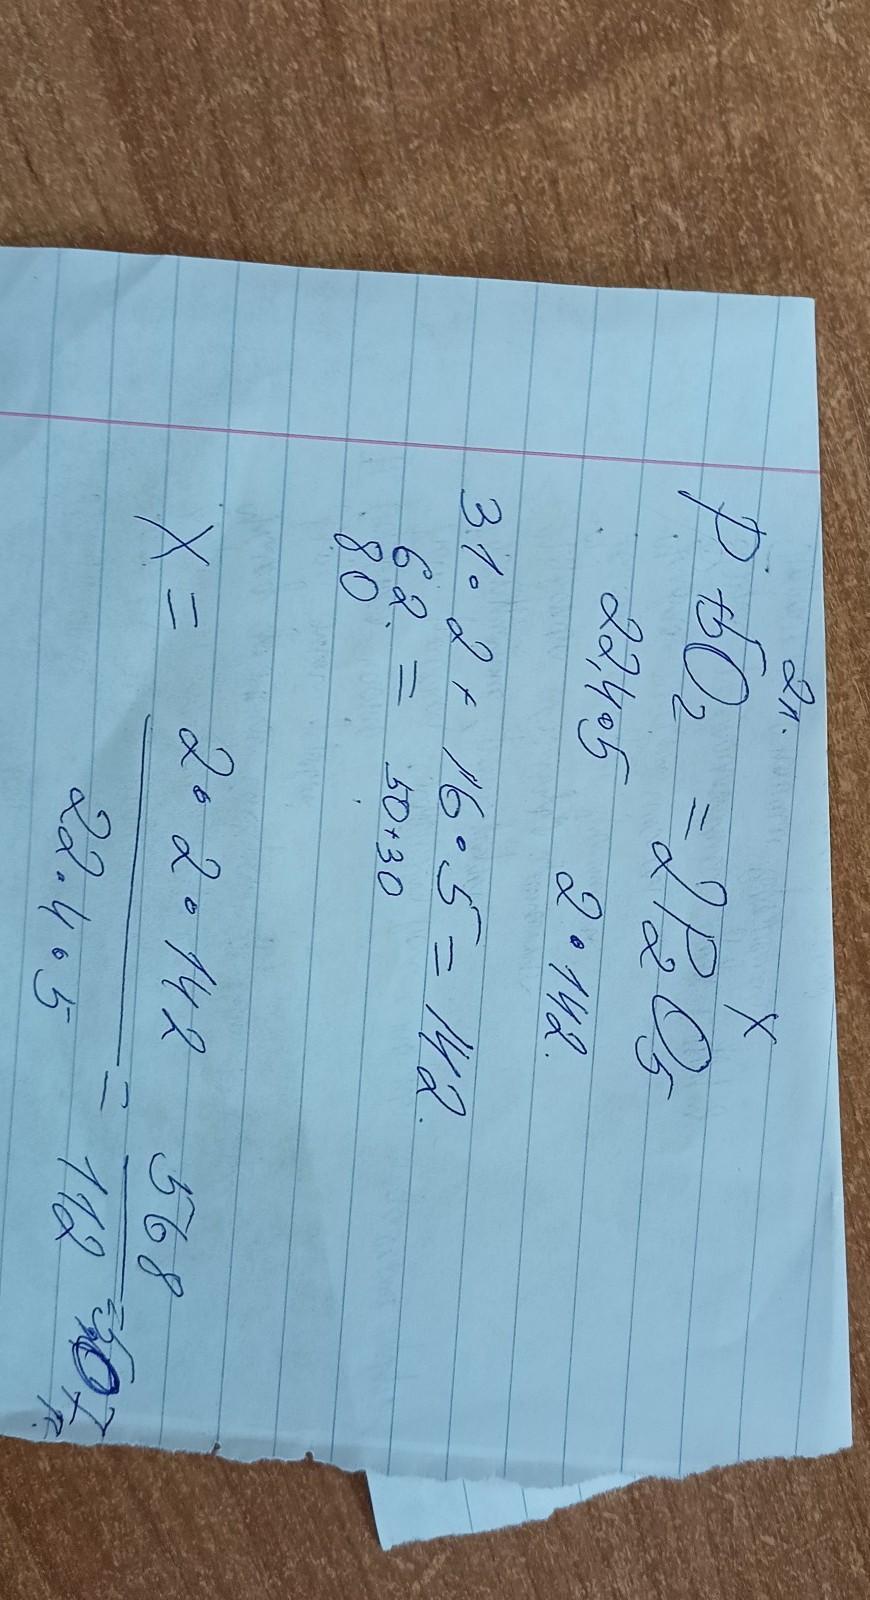 2л. x
P + 5O2 = 2P2O5
22,4·5 2·142.
31·2 + 16·5 = 142.
62 = 50+30
80
X = 2·2·142 / 22.4·5 = 568 / 112 = 5,07 г.